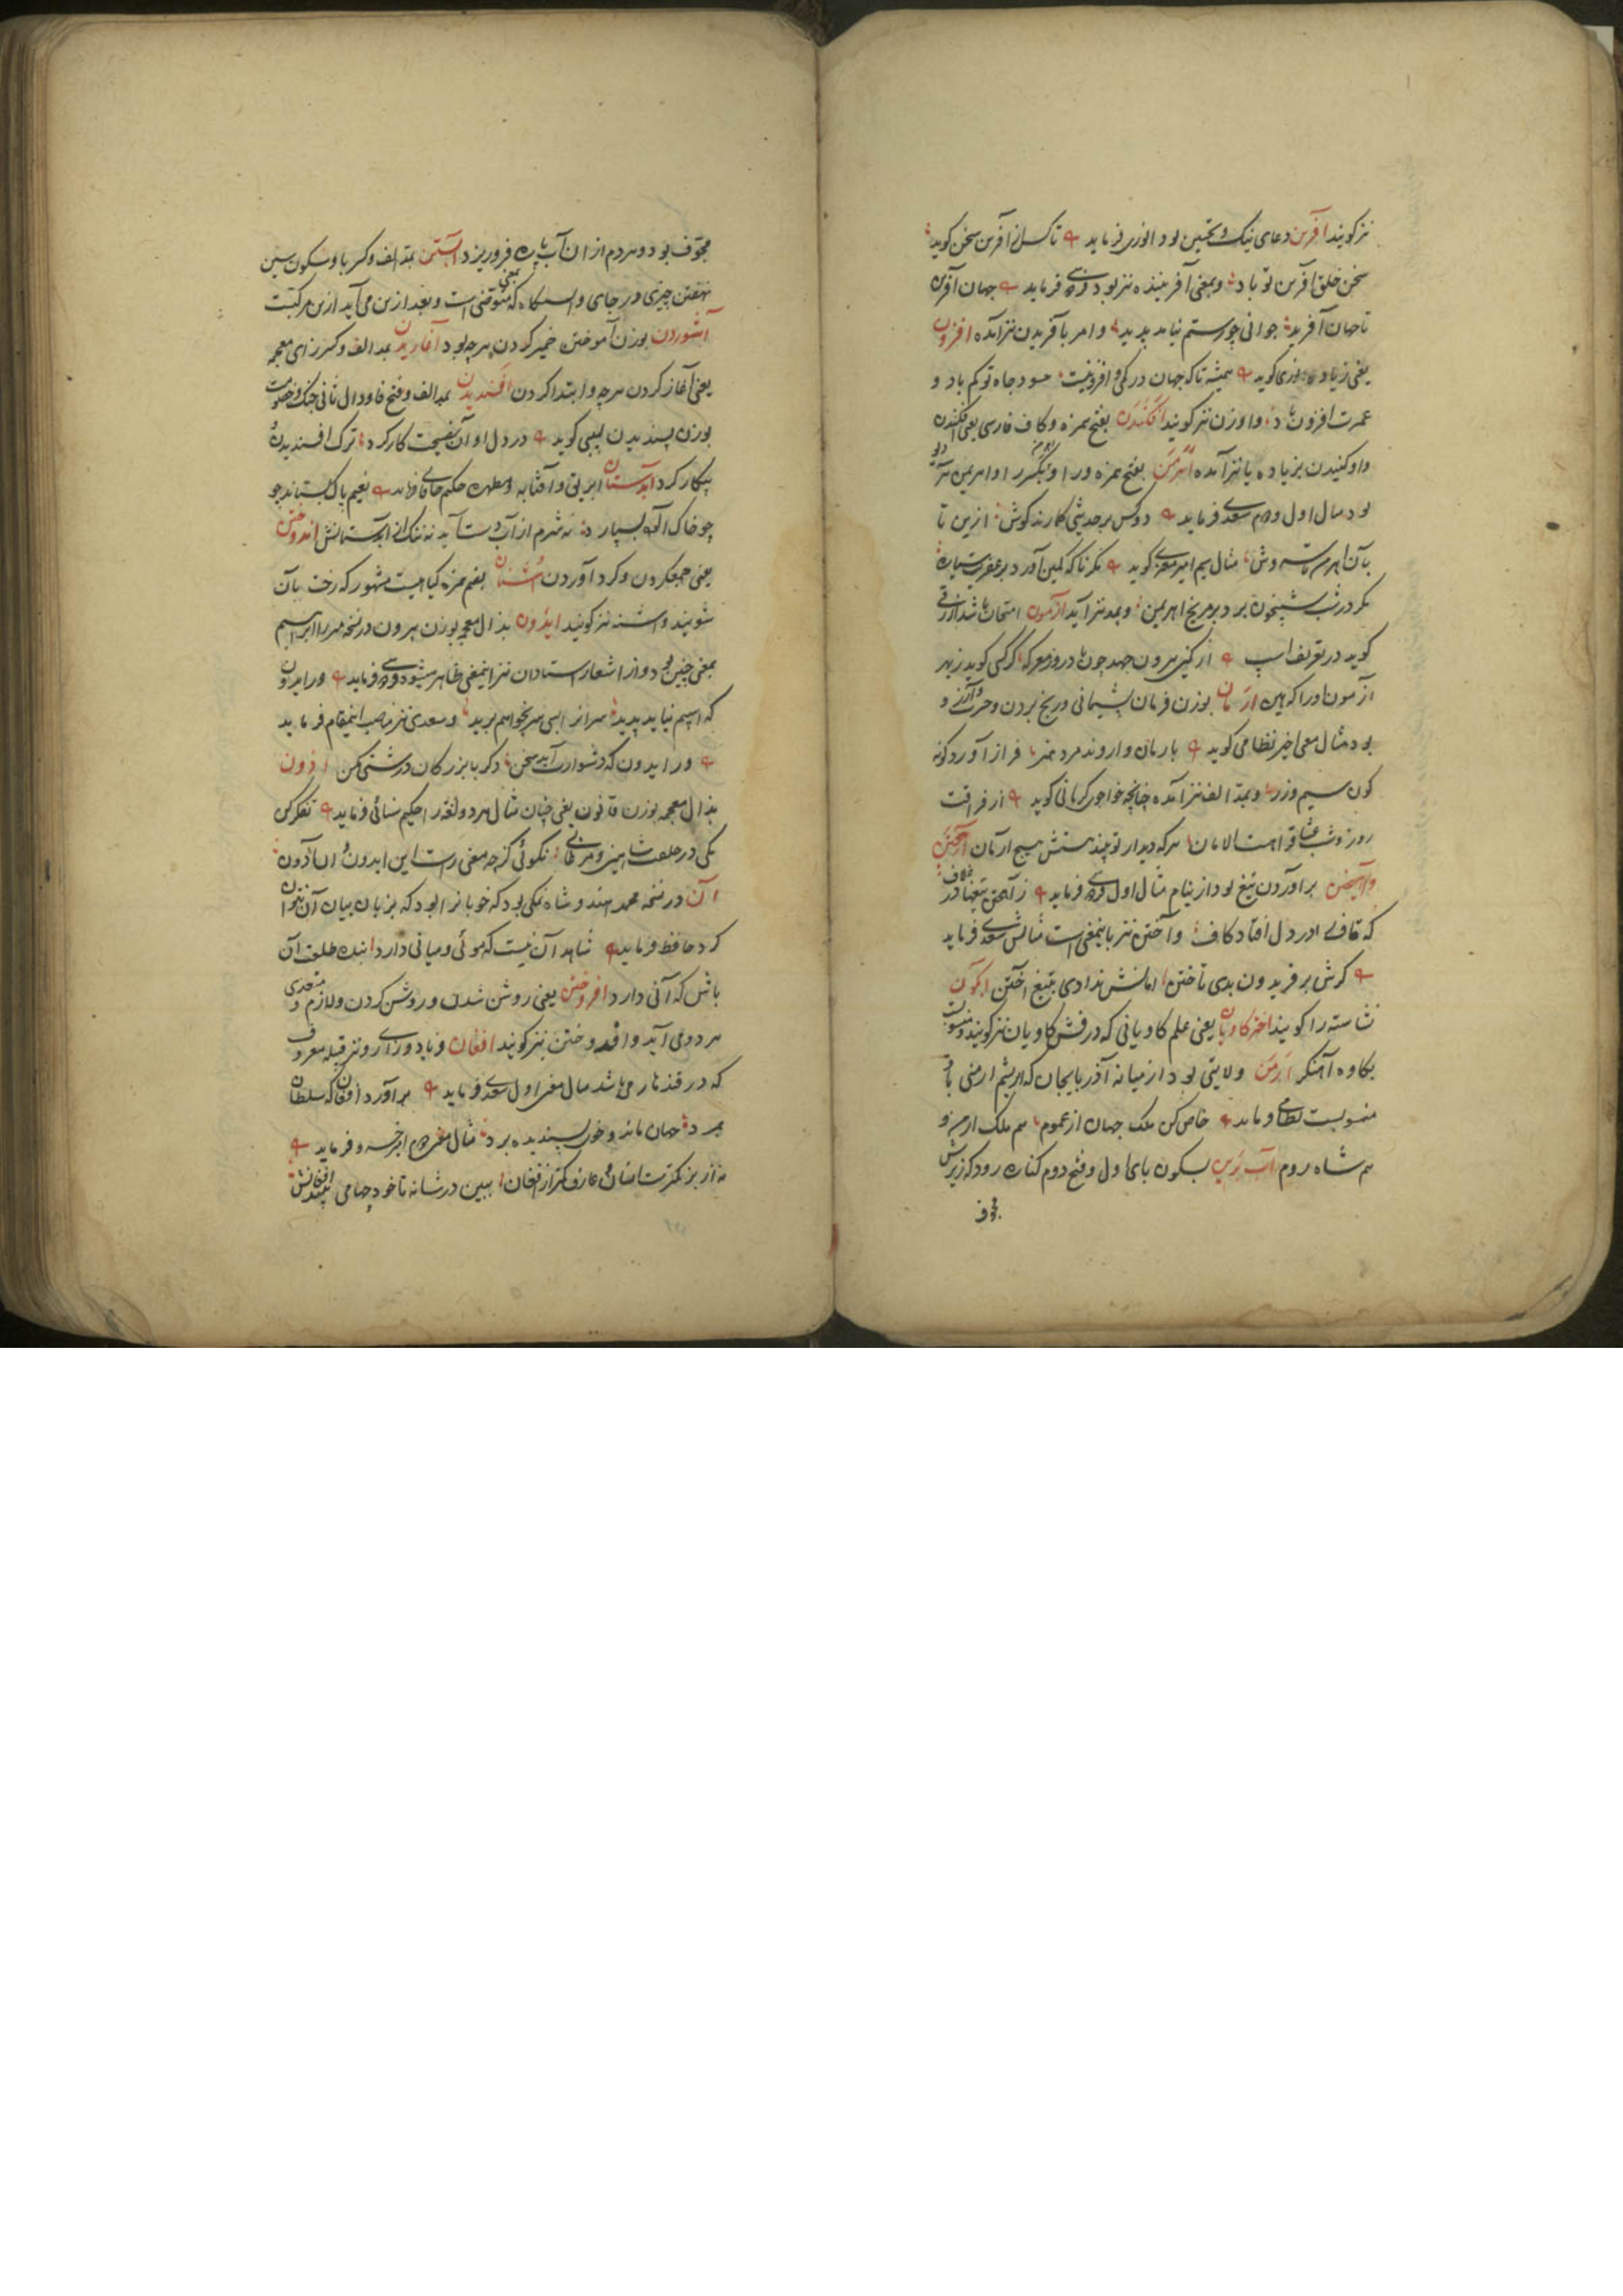 نیز کویند آفرین دعای نیک و تحسین بود انوری فرماید تا کسی از آفرین سخن کوید
سخن خلق آفرین تو باد و بمعنی آفریننده نیز بود فرماید جهان آفرین
تا جهان آفرید جوانی چو رستم نیامد پدید و امر بآفریدن نیز آمده افزون
یعنی زیاده انوری کوید همیشه تا که جهان در کمی و افزونیست حسود جاه تو کم باد و
عمرت افزون باد و اوزن نیز کویند افکندن بفتح همزه و کاف فارسی یعنی فکندن
و اوکندن بزیاده یا نیز آمده اهرمن بفتح همزه و را و بکسر را و اهریمن نیز
بود مثال اول و دوم سعدی فرماید دو کس بر حدیثی کمارند کوش ازین تا
بآن اهرمن تا سروش مثال سیم امیر معزی کوید نکر تا که کمین آورد بر عفریت سیاره
نکر در شب شبیخون برد بر مریخ اهریمن و بمد نیز آید آزمون امتحان باشد ازرقی
کوید در تعریف اسپ از کمین بیرون جهد چون باد در روز معرکه کرکسی کوید زبهر
آزمون او را که هین ارمان بوزن فرمان پشیمانی و رنج بردن و حسرت و آرزو
بود مثال معنی اخیر نظامی کوید بارمان و اروند مرد هنر فراز آورد کونه
کون سیم و زر و بمد الف نیز آمده چنانچه خواجوی کرمانی کوید از فراقت
روز و شب عشاق را هست الامان هر که دیدار تو بیند هستش هیچ ارمان آهختن
و آهیختن برآوردن تیغ بود از نیام مثال اول فرماید ز آهختن تیغها در غلاف
که قاف را در دل افتاد کاف و آختن نیز باینمعنی است مثالش سعدی فرماید
کرش بر فریدون بدی تاختن امانش ندادی بتیغ آختن اکون
نشاسته را کویند اختر کاویان یعنی علم کاویانی که درفش کاویان نیز کویند و منسوبست
بکاوه آهنکر ارمن ولایتی بود از میانه آذربایجان که ابریشم ارمنی باو
منسوبست نظامی فرماید خاص کن ملک جهان از عموم هم ملک ارمن و
هم شاه روم آب برین بسکون بای اول و فتح دوم کناره رود که زیرش
مجوف
مجوف بود و مردم از آن آب باره فرو ریزد آبستن بمد الف و کسر با و سکون سین
نهفتن چیزی در جای و است و بعد ازین می آید ازین مرکبست
آشوردن بوزن آموختن خمیر کردن هر چه بود آغازیدن بمد الف و کسر زای معجمه
یعنی آغاز کردن هر چه و ابتدا کردن افندیدن بمد الف و فتح فا و دال ثانی جنک و خصومت
بوزن پسندیدن لبیبی کوید در دل او آن نصیحت کار کرد ترک افسندیده
پیکار کرد آبدستان ابریق و آفتابه و مطهره حکیم خاقانی فرماید
چو خاک آلوده نه شرم از آب دست آید نه ننک از آبدستانش اندوختن
یعنی جمع کردن و کرد آوردن اشنان بضم همزه کیاهیست مشهور که رخت بآن
شویند و اشنه نیز کویند ایذون بذال معجمه بوزن بیرون در نسخه میرزا ابراهیم
بمعنی چنین بود و از اشعار استادان نیز اینمعنی ظاهر میشود فرماید ور ایدون
که اسپم نیاید پدید سرانرا بسی سر بخواهم برید و سعدی نیز مناسب اینمقام فرماید
ور ایدون که دشوارت آید سخن دکر با بزرکان درشتی مکن اذون
بذال معجمه بوزن قانون یعنی چنان مثال هر دو لغت را حکیم سنائی فرماید تفکر کن
یکی در خلقت شاهین و مرغابی نکوئی کز چه معنی راست این ایدون آن آذون
آن در نسخه محمد هندوشاه نمکی بود که خوبانرا بود که بزبان بیان آن نتوان
کرد حافظ فرماید شاهد آن نیست که موئی و میانی دارد بنده طلعت آن
باش که آنی دارد افروختن یعنی روشن شدن و روشن کردن و لازم و متعدی
هر دو می آید و افروختن نیز کویند افغان فریاد و زاری و نیز قبیله معروف
که در قندهار می باشد مثال معنی اول سعدی فرماید برآورد افغان که سلطان
بمرد جهان ماند و خوی پسندیده برد مثال معنی دوم امیر خسرو فرماید